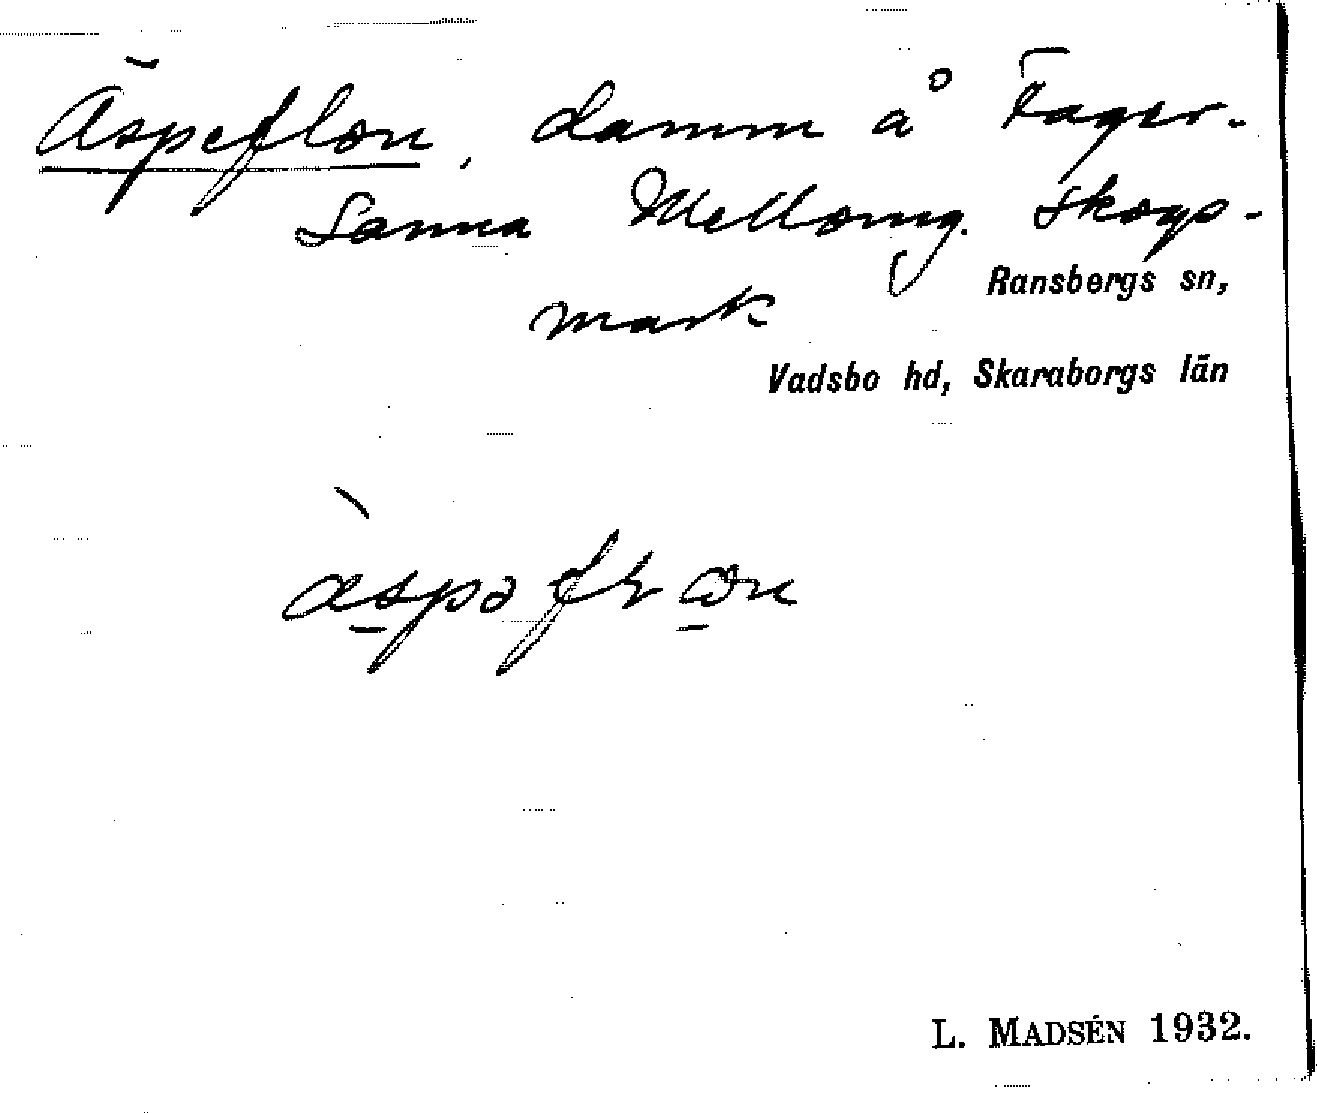 Äspeflon, damm å Fager-
sanna Mellomg. skogs-
Ransbergs sn,
mark
Vadsbo hd, Skaraborgs län
L. MADSÉN 1932.